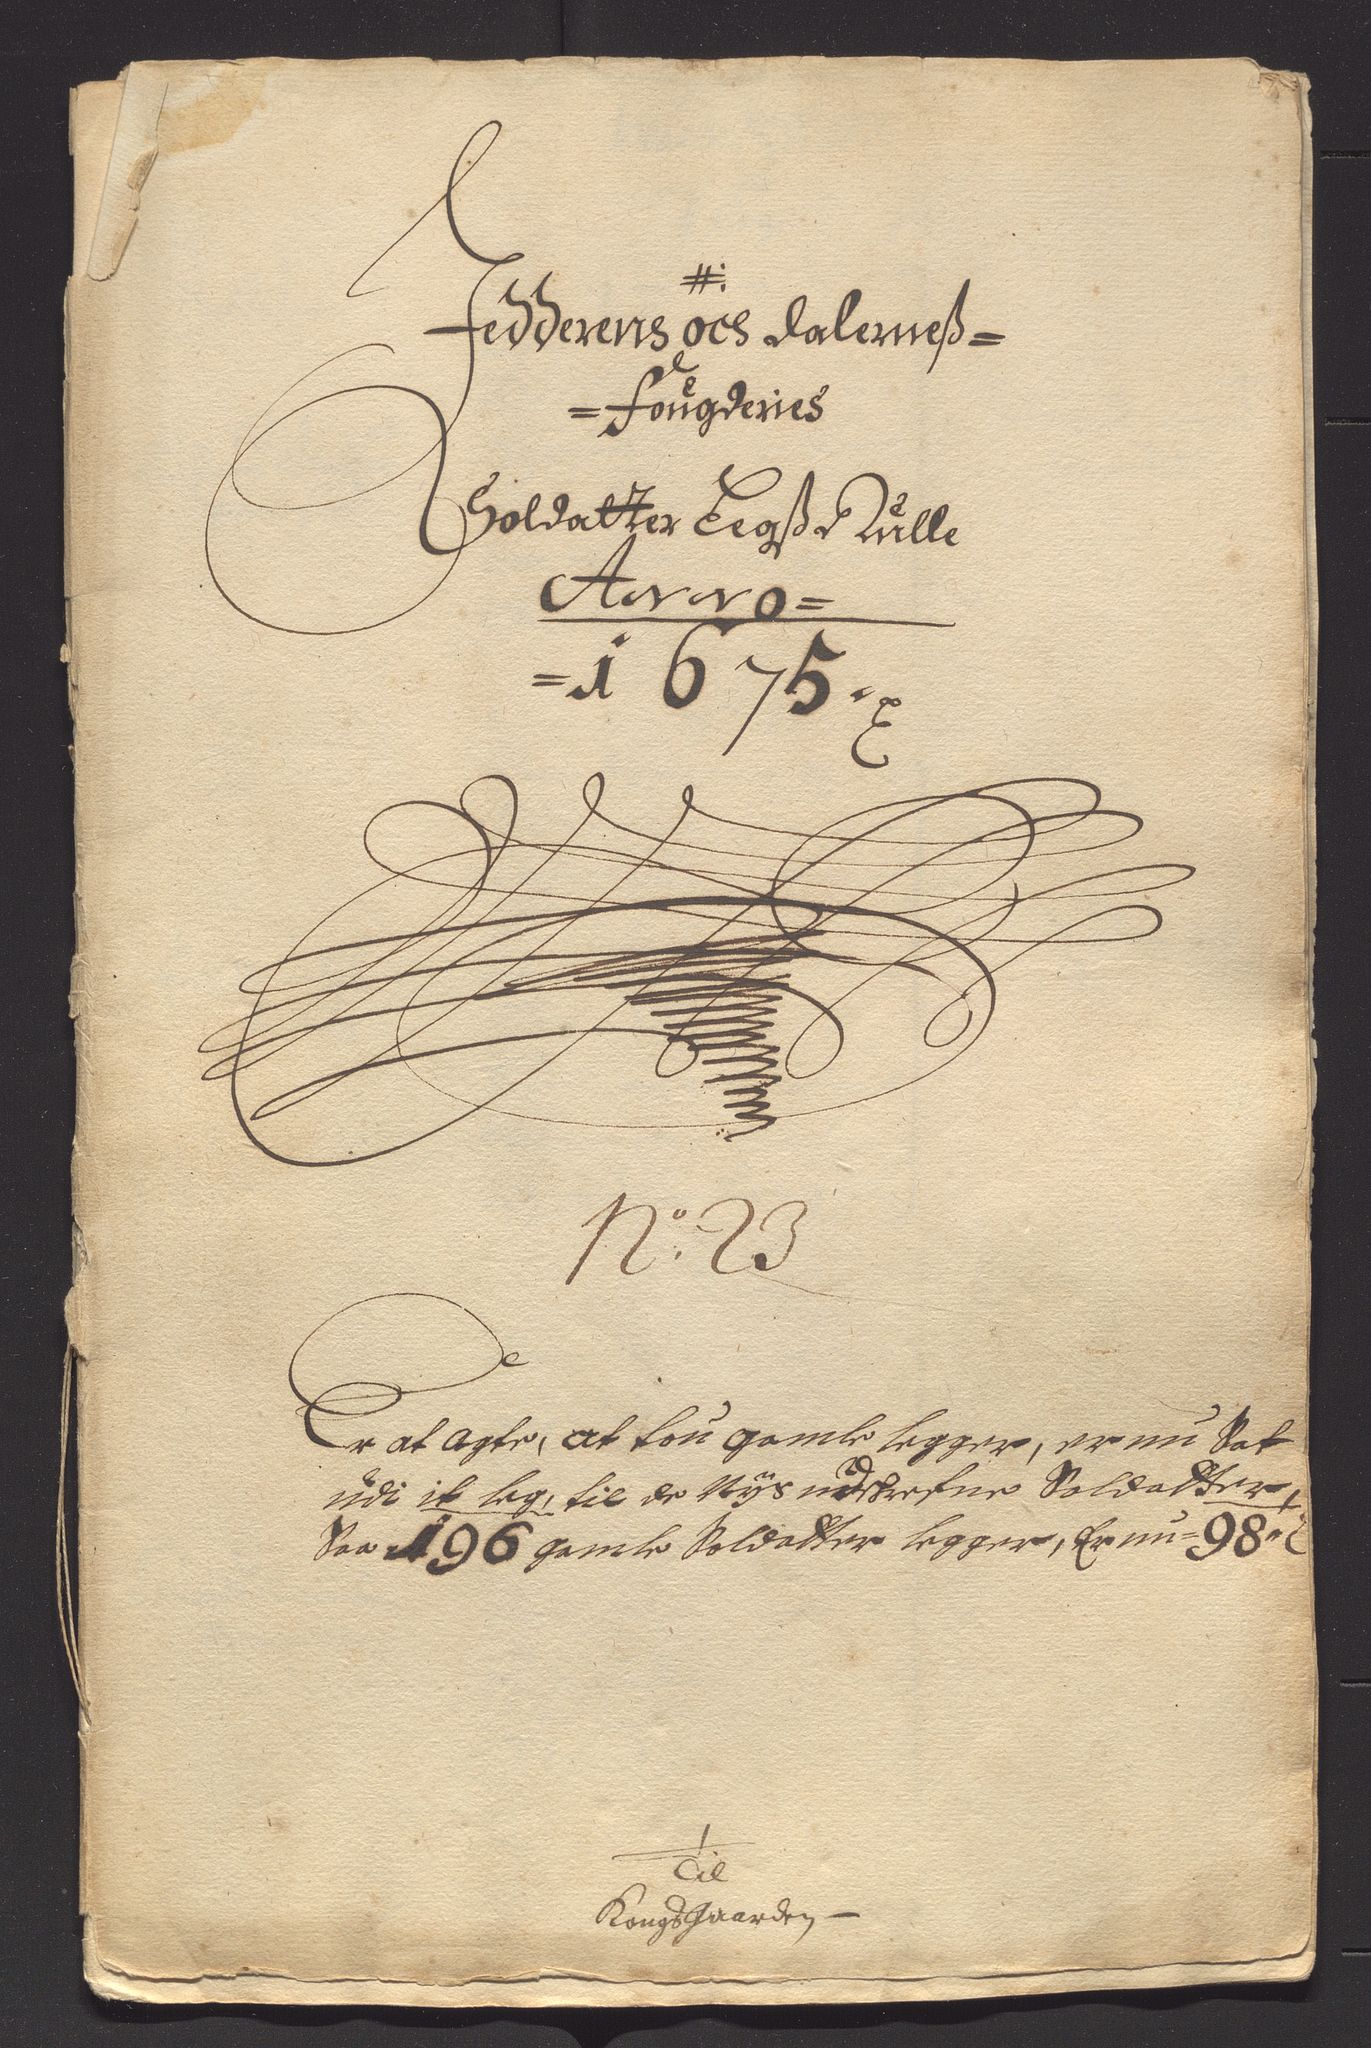 #:
Jedderens och Dalerneß=
=fougderies
Soldatter Legß Rulle
Anno=
=1675.
No: 23
Er at agte, at tou gamle legger, er nu Sat
udi it leg, til de Nÿs udskrefne Soldatter,
Saa 196 gamle Soldatter legger, Er nu=98
1
Til
Kongsgaarden